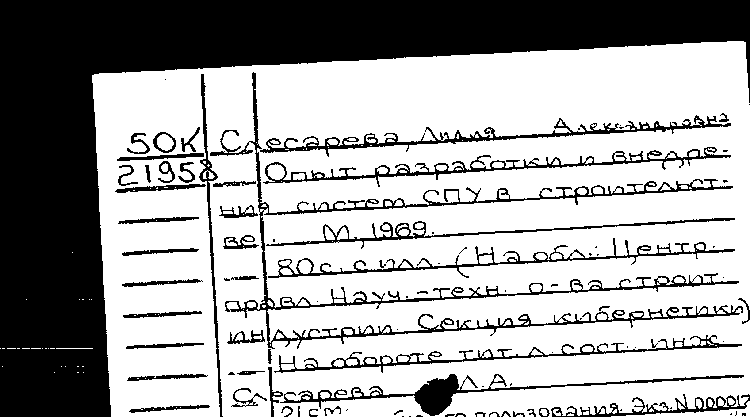 50К Слесарева, Лидия Александровна
21958 Опыт разработки и внедре-
ния систем СПУ в строительст-
ве. М., 1969.
80с. с илл. (На обл.: Центр.
правл. Науч.-техн. о-ва строит.
индустрии. Секция кибернетики)
На обороте тит. л. сост. инж.
Слесарева Л.А.
21 см. пользования Экз.N 000017